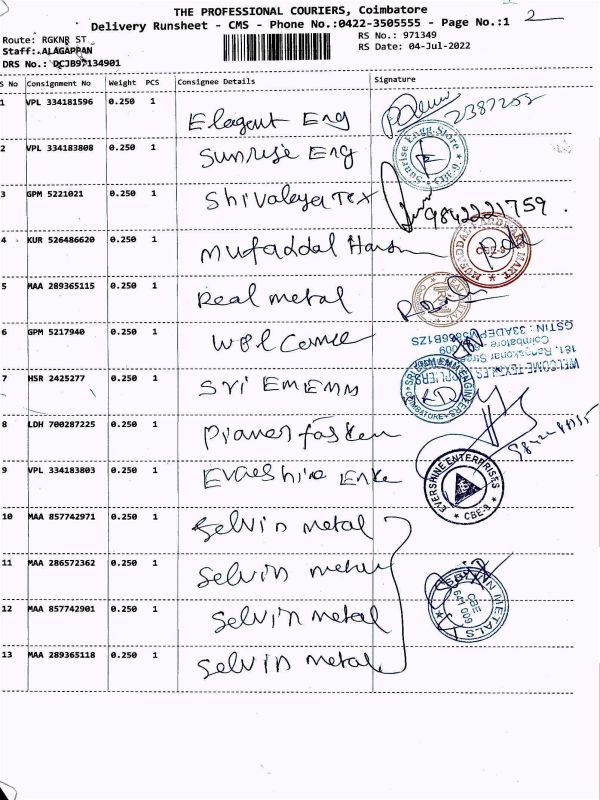 THE PROFESSIONAL COURIERS, Coimbatore
Delivery Runsheet - CMS - Phone No.:0422-3505555 - Page No.:1 2
Route: RGKNR ST RS No.: 971349
Staff: ALAGAPPAN RS Date: 04-Jul-2022
DRS No.: DCJB97134901
S No Consignment No Weight PCS Consignee Details Signature
1 VPL 334181596 0.250 1 Elagent Eng
2 VPL 334183808 0.250 1 Sunrise Eng Sunrise Engg. Store CBE-9
3 GPM 5221021 0.250 1 Shivalaya Tex 9842221759.
4 KUR 526486620 0.250 1 Mufaddal CBE-9 MART
5 MAA 289365115 0.250 1 Real metal
6 GPM 5217940 0.250 1 Welcome
GSTIN : 33ADEPV5866B1ZS
Coimbatore 009
181, Rangakonar Street
WELCOME TEX SALES SUPPLIERS
7 HSR 2425277 0.250 1 Sri EMEMM SRI EMEMM ENGINEERS COIMBATORE
8 LDH 700287225 0.250 1
9 VPL 334183803 0.250 1 EVERSHINE ENTERPRISES CBE-9
10 MAA 857742971 0.250 1 Selvin metal
11 MAA 286572362 0.250 1 Selvin metal
12 MAA 857742901 0.250 1 Selvin metal SELVIN METALS CBE 641 009
13 MAA 289365118 0.250 1 Selvin metal